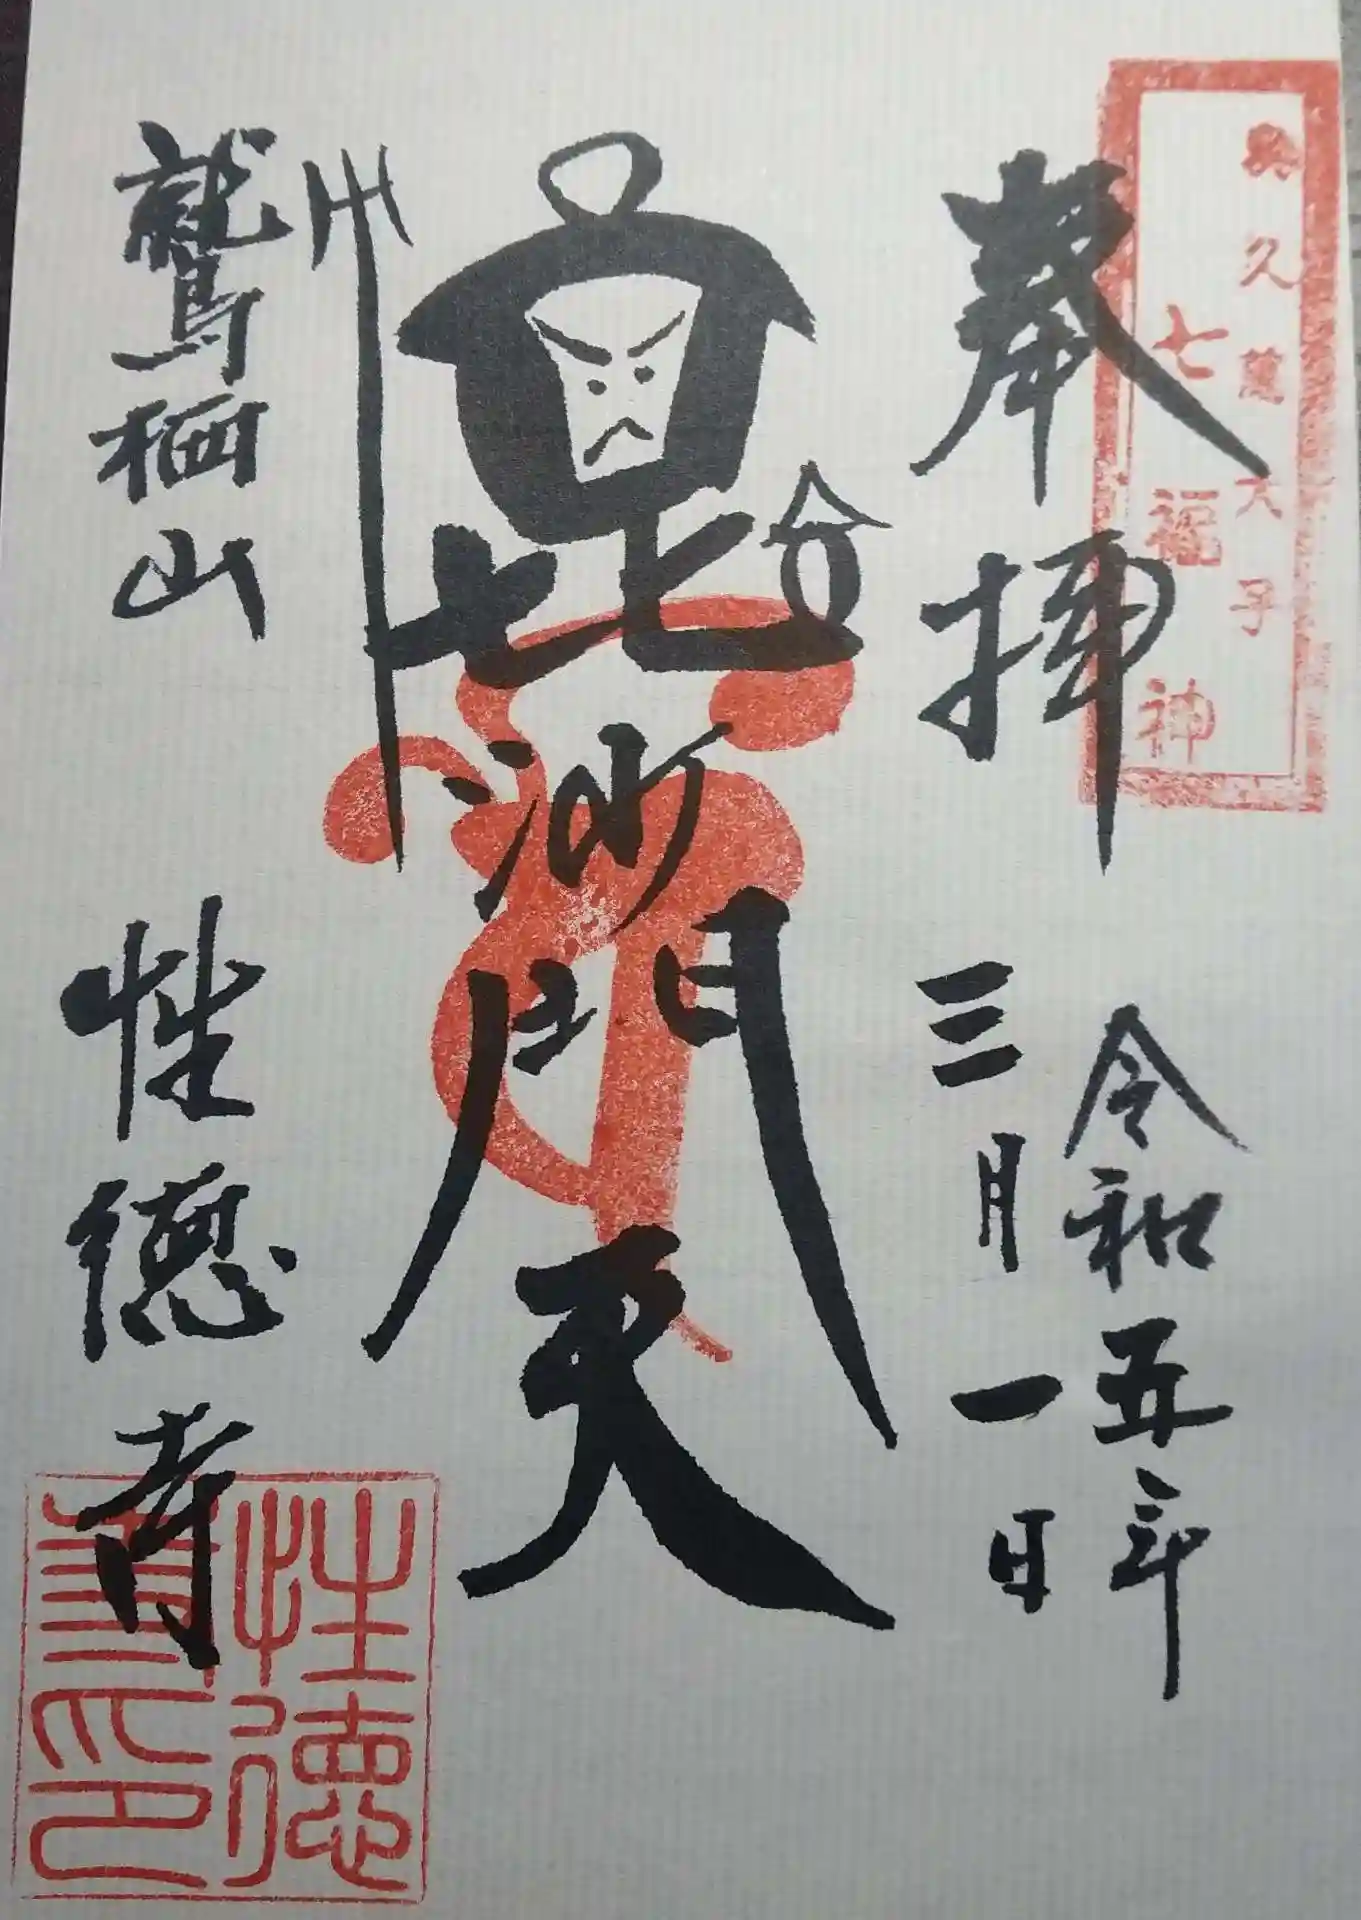 奥久慈大子
七福神
奉拝
令和五年
三月一日
毘沙門天
鷲栖山
性徳寺
性徳
寺印